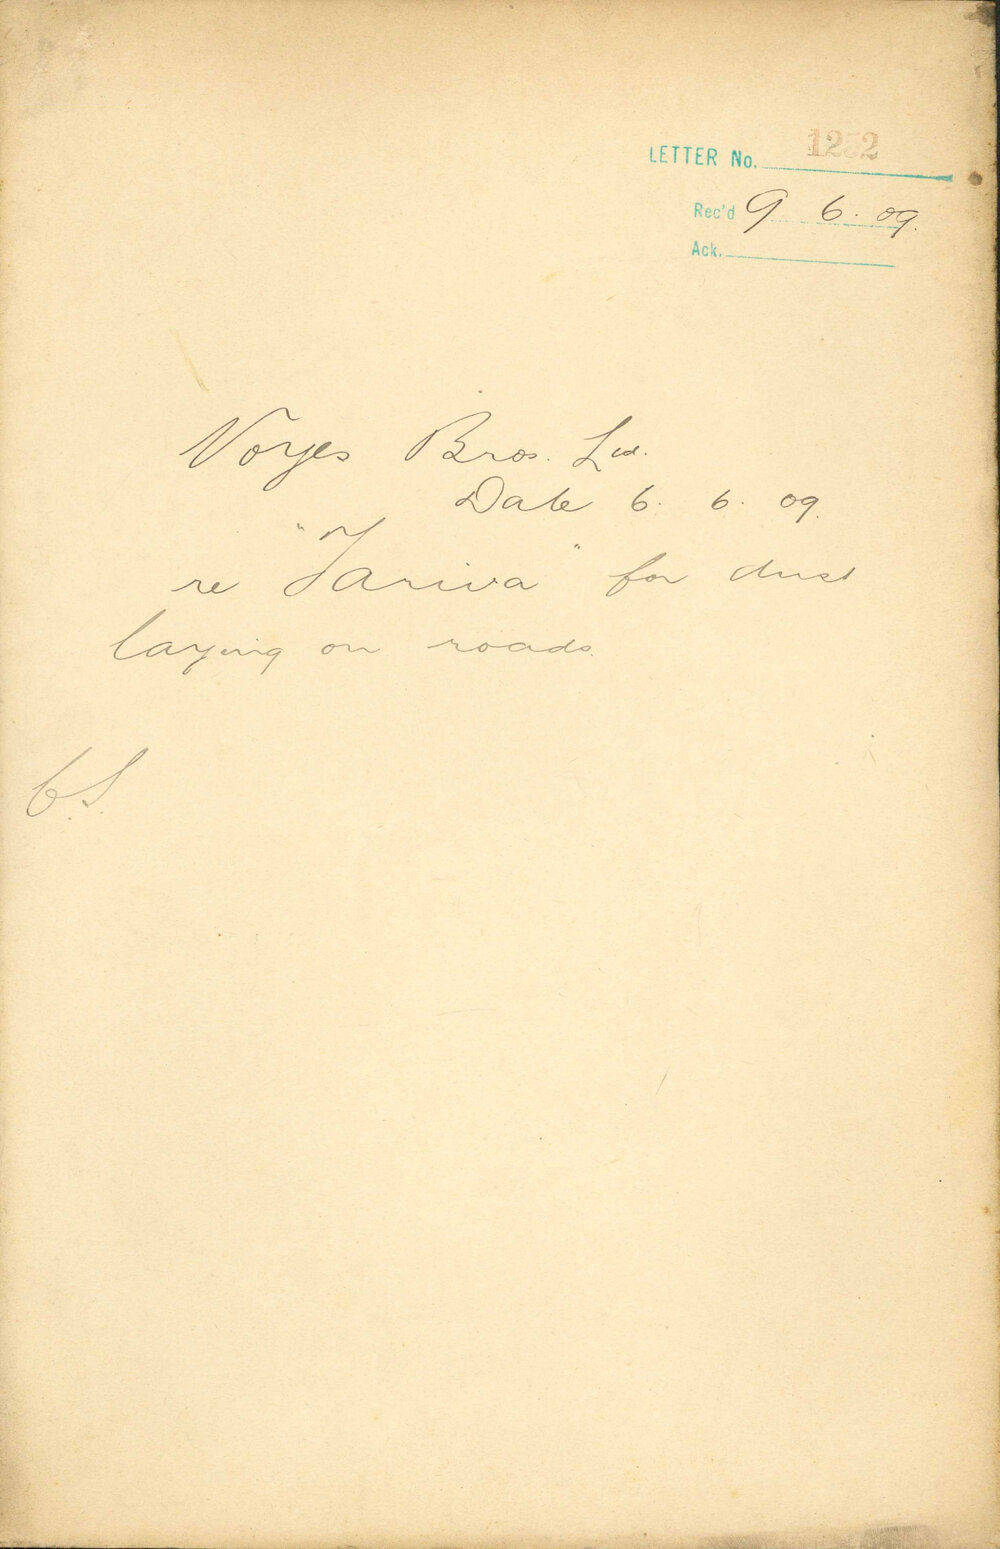 LETTER No. 1252
Rec'd 9 6. 09.
Ack.
Noyes Bros. Ltd.
Date 6. 6. 09.
re "Tariva" for dust
laying on roads.